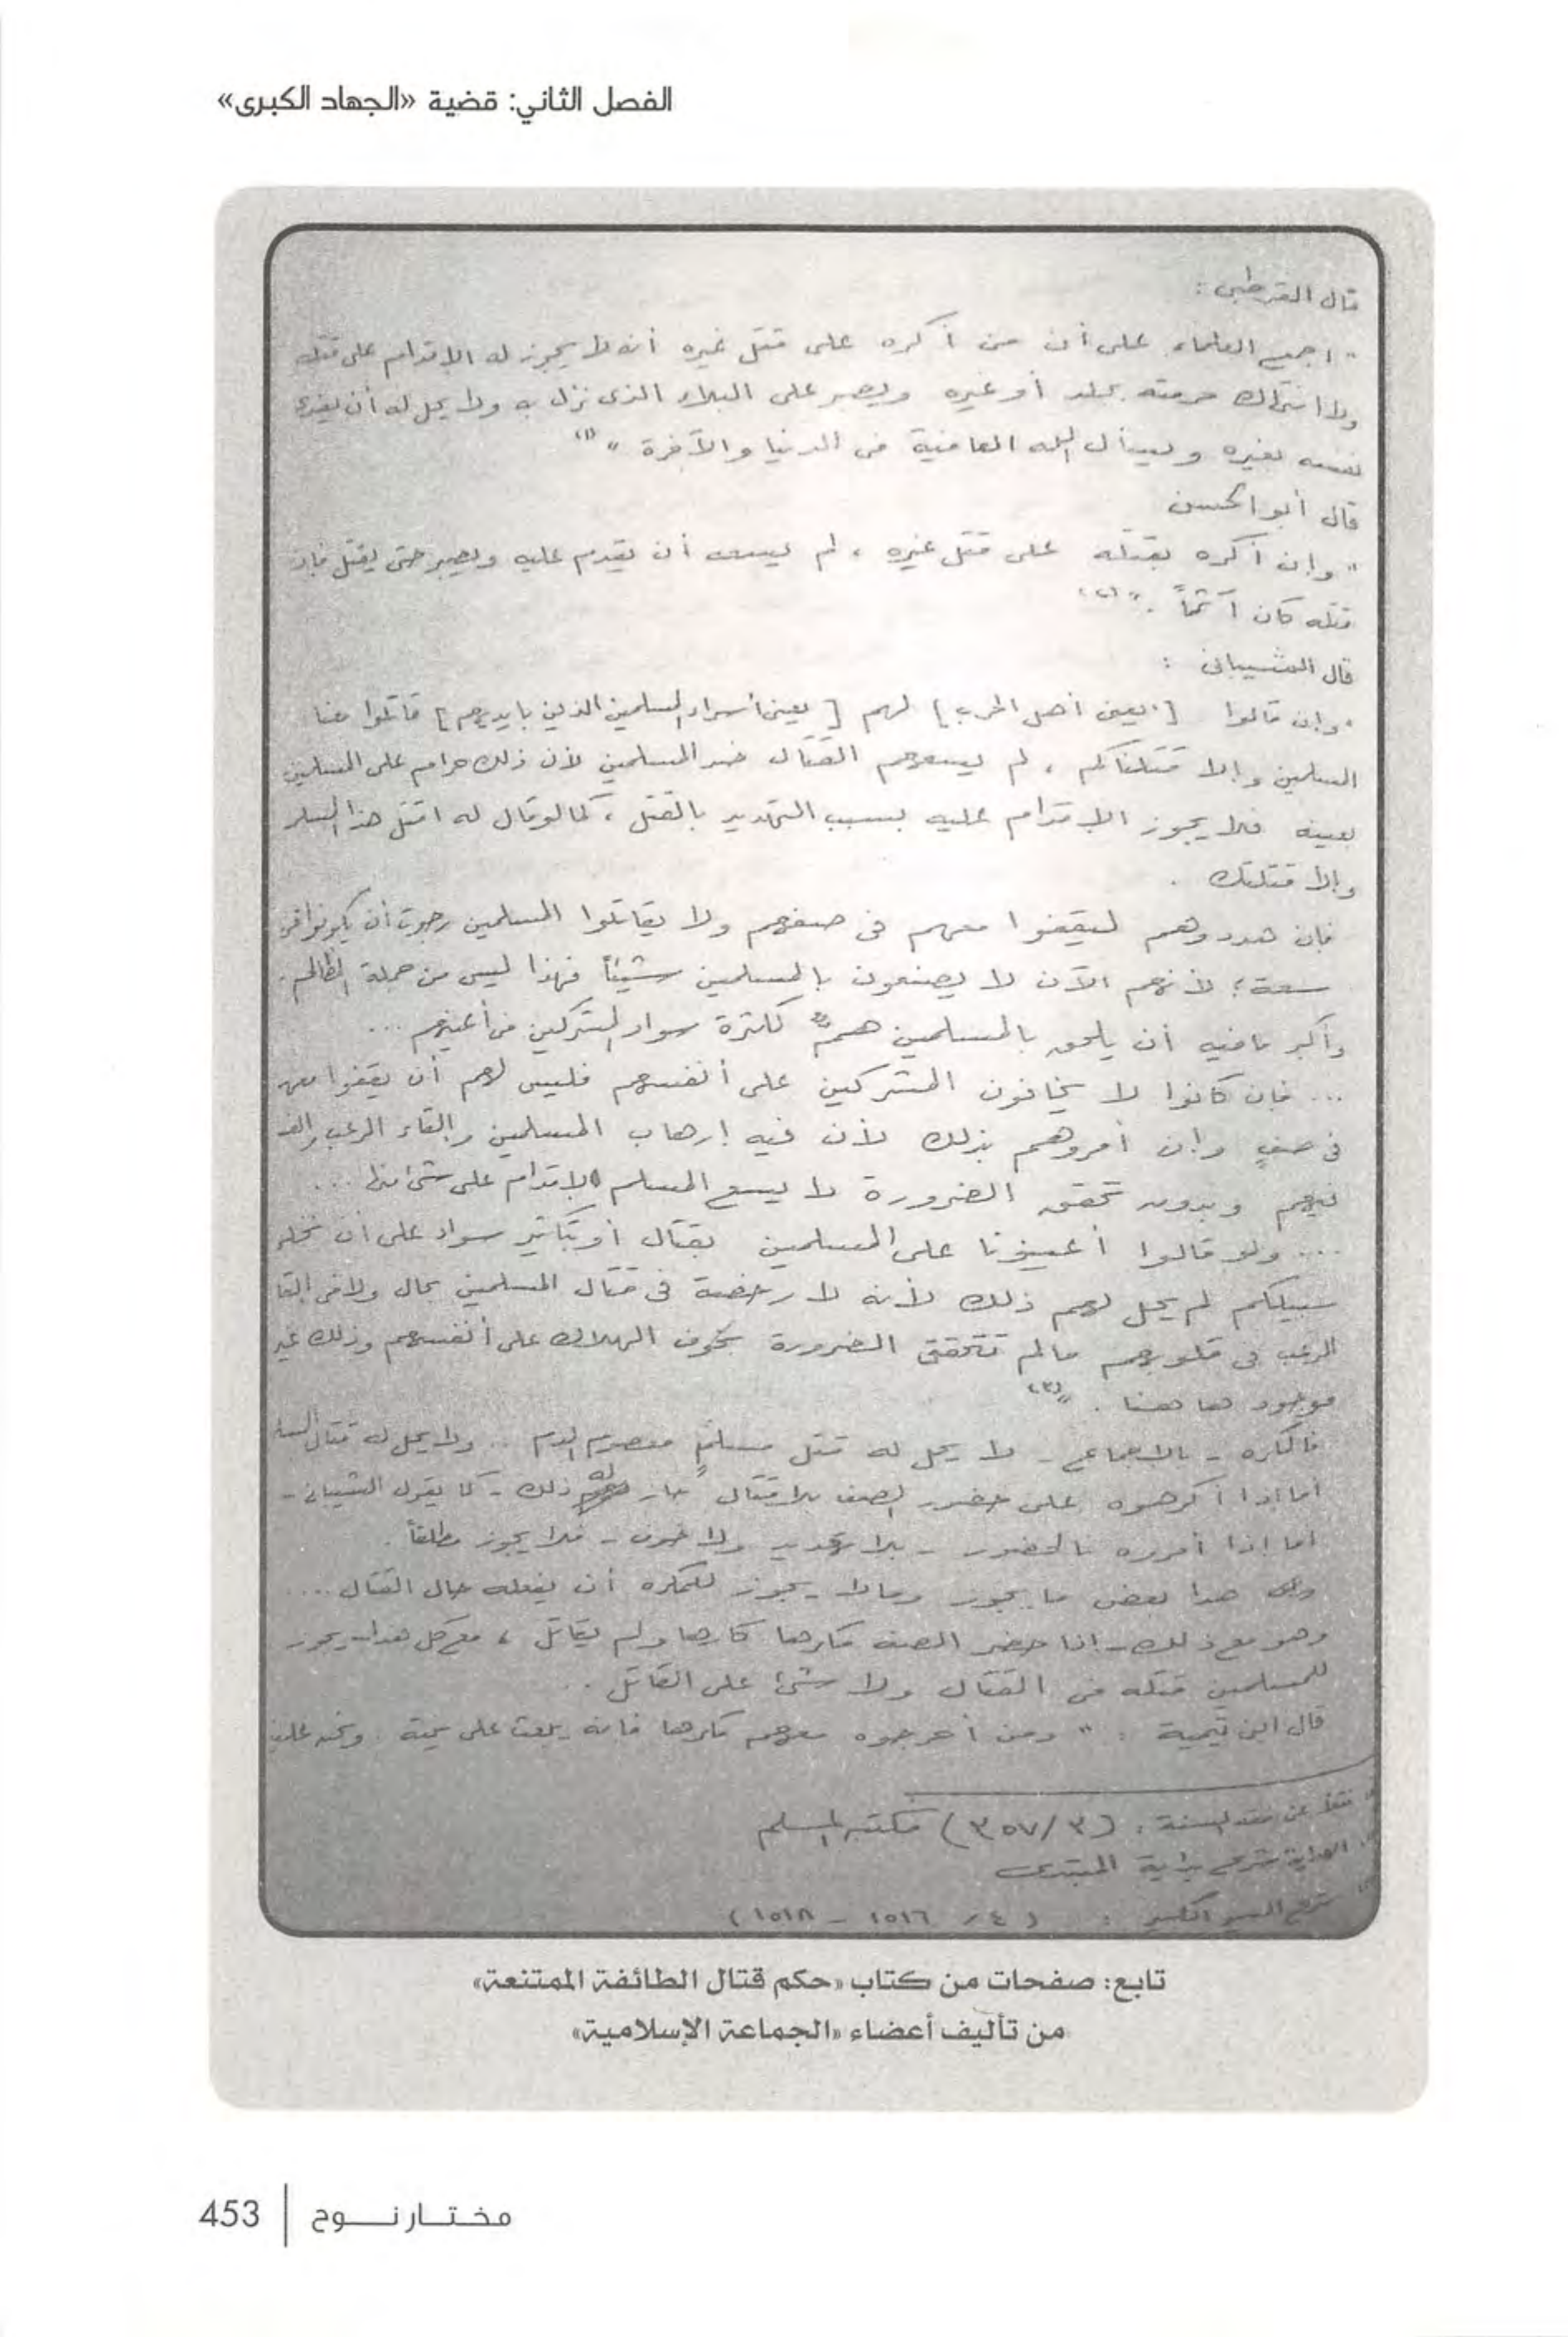 الفصل الثاني: قضية «الجهاد الكبرى»
قال القرطبى :
" اجمع العلماء على أن من أكره على قتل غيره أنه لا يجوز له الإقدام على قتله
ولا انتهاك حرمته بجلد أو غيره ويصبر على البلاء الذى نزل به ولا يحل له أن يفدى
نفسه بغيره ويسأل الله العافية فى الدنيا والآخرة " (١)
قال أبو الحسن
" وإن أكره بقتله على قتل غيره ، لم يسعه أن يقدم عليه ويصبر حتى يقتل فإن
قتله كان آثماً . " (٢)
قال الشيبانى :
" وإن قالوا [ يعنى أهل الحرب ] لهم [ يعنى أسراء المسلمين الذين بايديهم ] قاتلوا معنا
المسلمين وإلا قتلناكم ، لم يسعهم القتال ضد المسلمين لأن ذلك حرام على المسلمين
بعينه فلا يجوز الإقدام عليه بسبب التهديد بالقتل ، كما لو قال له اقتل هذا المسلم
وإلا قتلتك .
فإن هددوهم ليقفوا معهم فى صفهم ولا يقاتلوا المسلمين رجوت أن يكونوا فى
سعة ؛ لأنهم الآن لا يصنعون بالمسلمين شيئاً فهذا ليس من جملة المظالم .
وأكبر ما فيه أن يلحق بالمسلمين هم لكثرة سواد المشركين فى أعينهم ...
... فإن كانوا لا يخافون المشركين على أنفسهم فليس لهم أن يقفوا معهم
فى صف وإن أمروهم بذلك لأن فيه إرهاب المسلمين وإلقاء الرعب والف
فيهم وبدون تحقق الضرورة لا يسع المسلم الإقدام على شئ منها ...
... ولو قالوا أعينونا على المسلمين بقتال أو بتكثير سواد على أن نخلى
سبيلكم لم يحل لهم ذلك لأنه لا رخصة فى قتال المسلمين بحال ولا فى إلقا
الرعب فى قلوبهم ما لم تتحقق الضرورة بخوف الهلاك على أنفسهم وذلك غير
موجود ها هنا . " (٣)
فالمكره - بالاجماع - لا يحل له قتل مسلم معصوم الدم .. ولا يحل له قتال
أما إذا أكرهوه على حضور الصف بلا قتال جاز له ذلك - كما يقول الشيبانى -
أما إذا أمروه بالحضور - بلا تهديد ولا خوف - فلا يجوز مطلقاً .
هذا بعض ما يجوز وما لا يجوز للمكره أن يفعله حال القتال ....
وهو مع ذلك - إذا حضر الصف مكرها كارها ولم يقاتل ، مع كل هذا يجوز
للمسلمين قتله فى القتال ولا شئ على القاتل ..
قال ابن تيمية : " ومن أخرجوه معهم مكرها فانه يبعث على نيته . ونحن علينا
نقلاً عن فقه السنة : (٣/٣٥٧) مكتبة المسلم
الهداية شرح بداية المبتدى
شرح السير الكبير : (٤/ ١٥١٦ - ١٥١٨)
تابع: صفحات من كتاب «حكم قتال الطائفة الممتنعة»
من تأليف أعضاء «الجماعة الإسلامية»
مختار نوح | 453